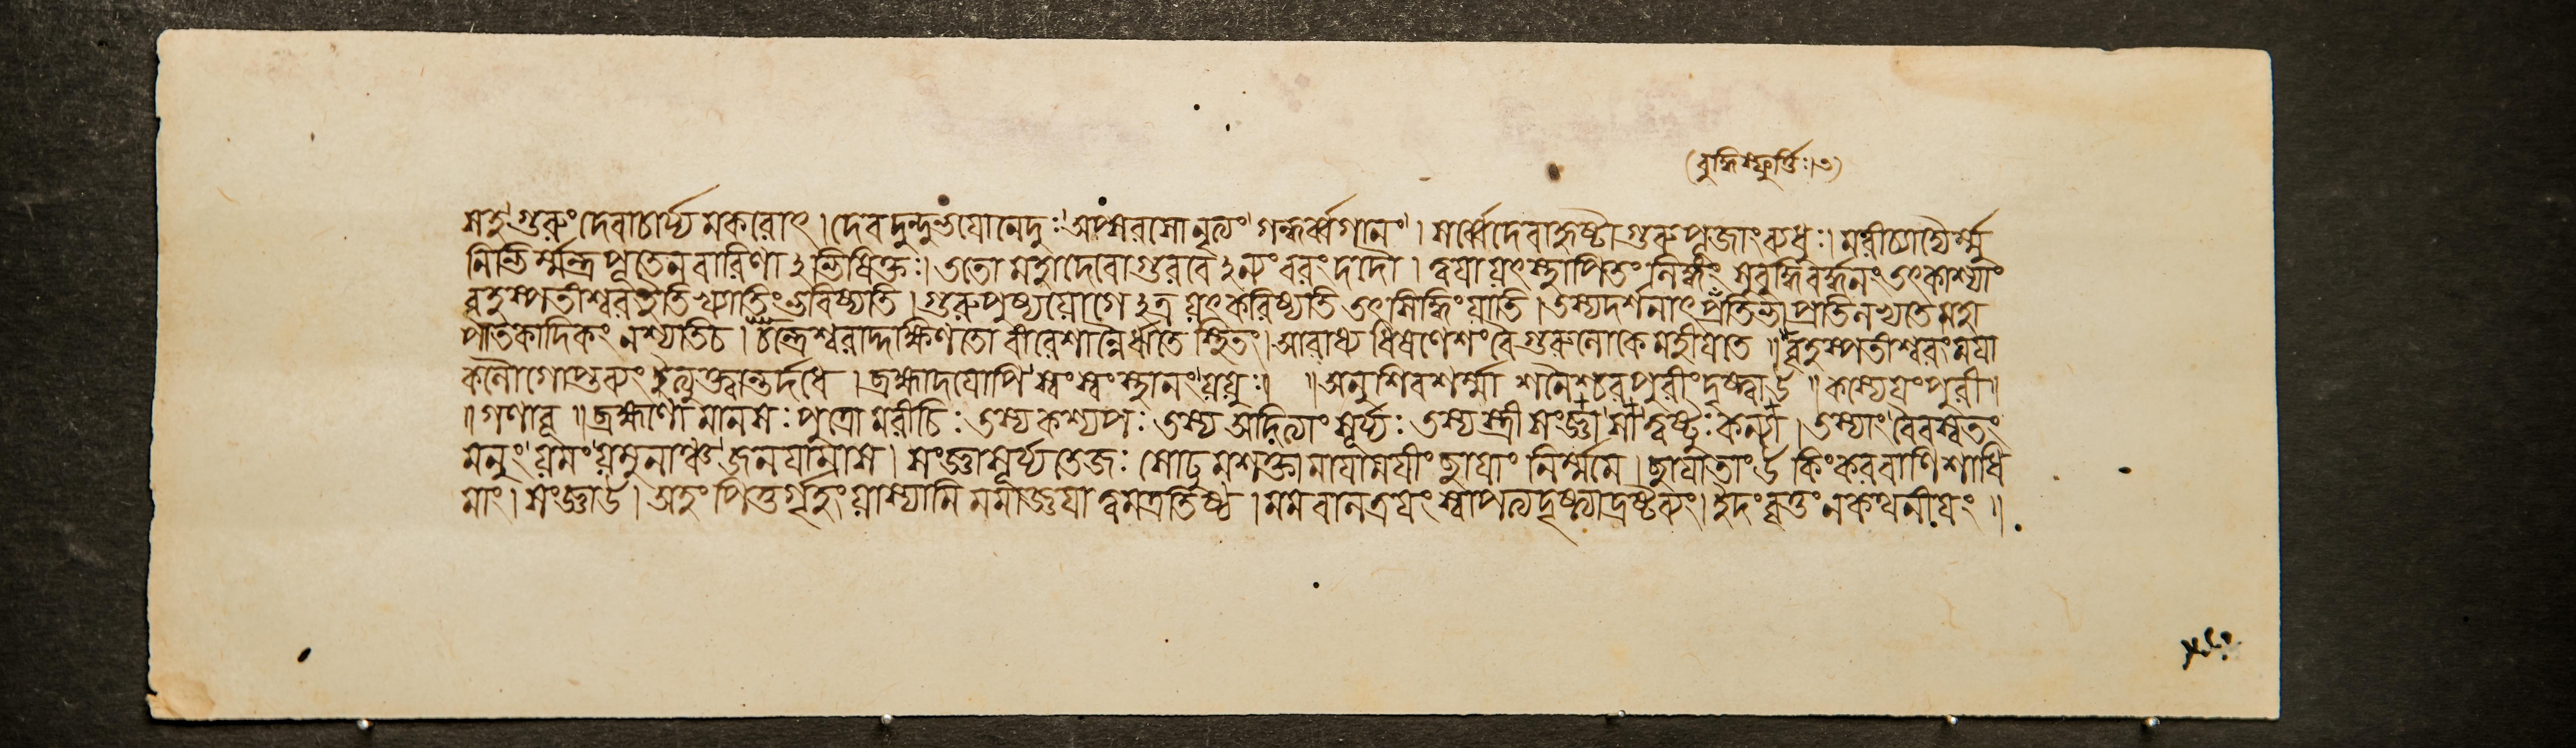 (বুদ্ধিস্ফুর্ত্তিঃ।৩)
গুরুং দেবাচার্য্য মকরোৎ। দেবদুন্দুভয়োনেদুঃ অপ্সরসোনৃত্যং গন্ধর্ব্বগানং। সর্ব্বেদেবাহৃষ্টাগুরুপূজাংব্যধুঃ। মরীচ্যাদ্যৈর্ম্মু
নিভির্ম্মন্ত্রপূতেনবারিণাঽভিষিক্তঃ। ততো মহাদেবোগুরবেঽন্যংবরং দাদৌ। ত্বয়ায়ৎস্থাপিতং লিঙ্গং সুবুদ্ধিবর্দ্ধনং তৎকাশ্যাং
বৃহস্পতীশ্বরইতিখ্যাতিংভবিষ্যতি। গুরুপুষ্যয়োগেঽত্র য়ৎকরিষ্যতি তৎসিদ্ধিংয়াতি। তস্যদর্শনাৎ প্রতিভা প্রতিলভ্যতেমহা
পাতকাদিকং নশ্যতিচ। চন্দ্রেশ্বরাদ্দক্ষিণতো বীরেশান্নৈর্ঋতে স্থিতং। আরাধ্য ধিষণেশংবৈগুরুলোকে মহীয়তে॥ বৃহস্পতীশ্বরংময়া
কলৌগোপ্তব্যং ইত্যুক্ত্বান্তর্দধে। ব্রহ্মাদয়োপি স্বংস্বংস্থানং য়য়ুঃ। ॥অনুশিবশর্ম্মা শনৈশ্চরপুরীংদৃষ্ট্বা উ॥ কস্যেয়ংপুরী॥
॥গণাবূ॥ ব্রহ্মণো মানসঃ পুত্রো মরীচিঃ তস্য কশ্যপঃ তস্য অদিত্যাং সূর্য্যঃ তস্য স্ত্রী সংজ্ঞা সা ত্বষ্টুঃ কন্যা। তস্যাং বৈবস্বতং
মনুং য়মং য়মুনাঞ্চ জনয়ামাস। সংজ্ঞাসূর্য্যতেজঃ সোঢুমশক্তা মায়াময়ীং ছায়াং নির্ম্মমে। ছায়াতাং উ কিংকরবাণিশাধি
মাং। সংজ্ঞাউ। অহং পিতুর্গৃহং য়াস্যামি মমাজ্ঞয়া ত্বমত্রতিষ্ঠ। মমবালত্রয়ং স্বাপত্যদৃষ্ট্যাদ্রষ্টব্যং। ইদংবৃত্তং নকথনীয়ং॥